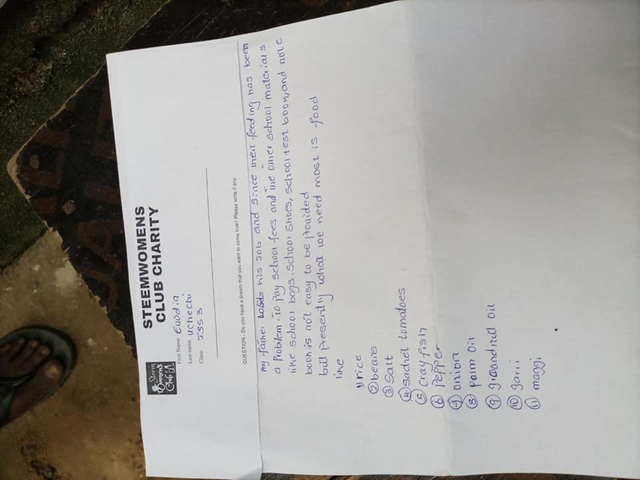 STEEMWOMENS
CLUB CHARITY
First Name Euodia
Last name uchechi
Class JSS3
QUESTION:- Do you have a dream that you want to come true? Please write if any
my father his Job and since then feeding has been
a problem. to pay school fees and the other school materials
like school bags, school shoes, school test book, and note
book is not easy to be provided
but presently what we need most is food
like
1) rice
② beans
③ salt
④ sachet tomatoes
⑤ cray fish
⑥ pepper
⑦ onion
⑧ palm oil
⑨ groundnut oil
⑩ garri
⑪ maggi